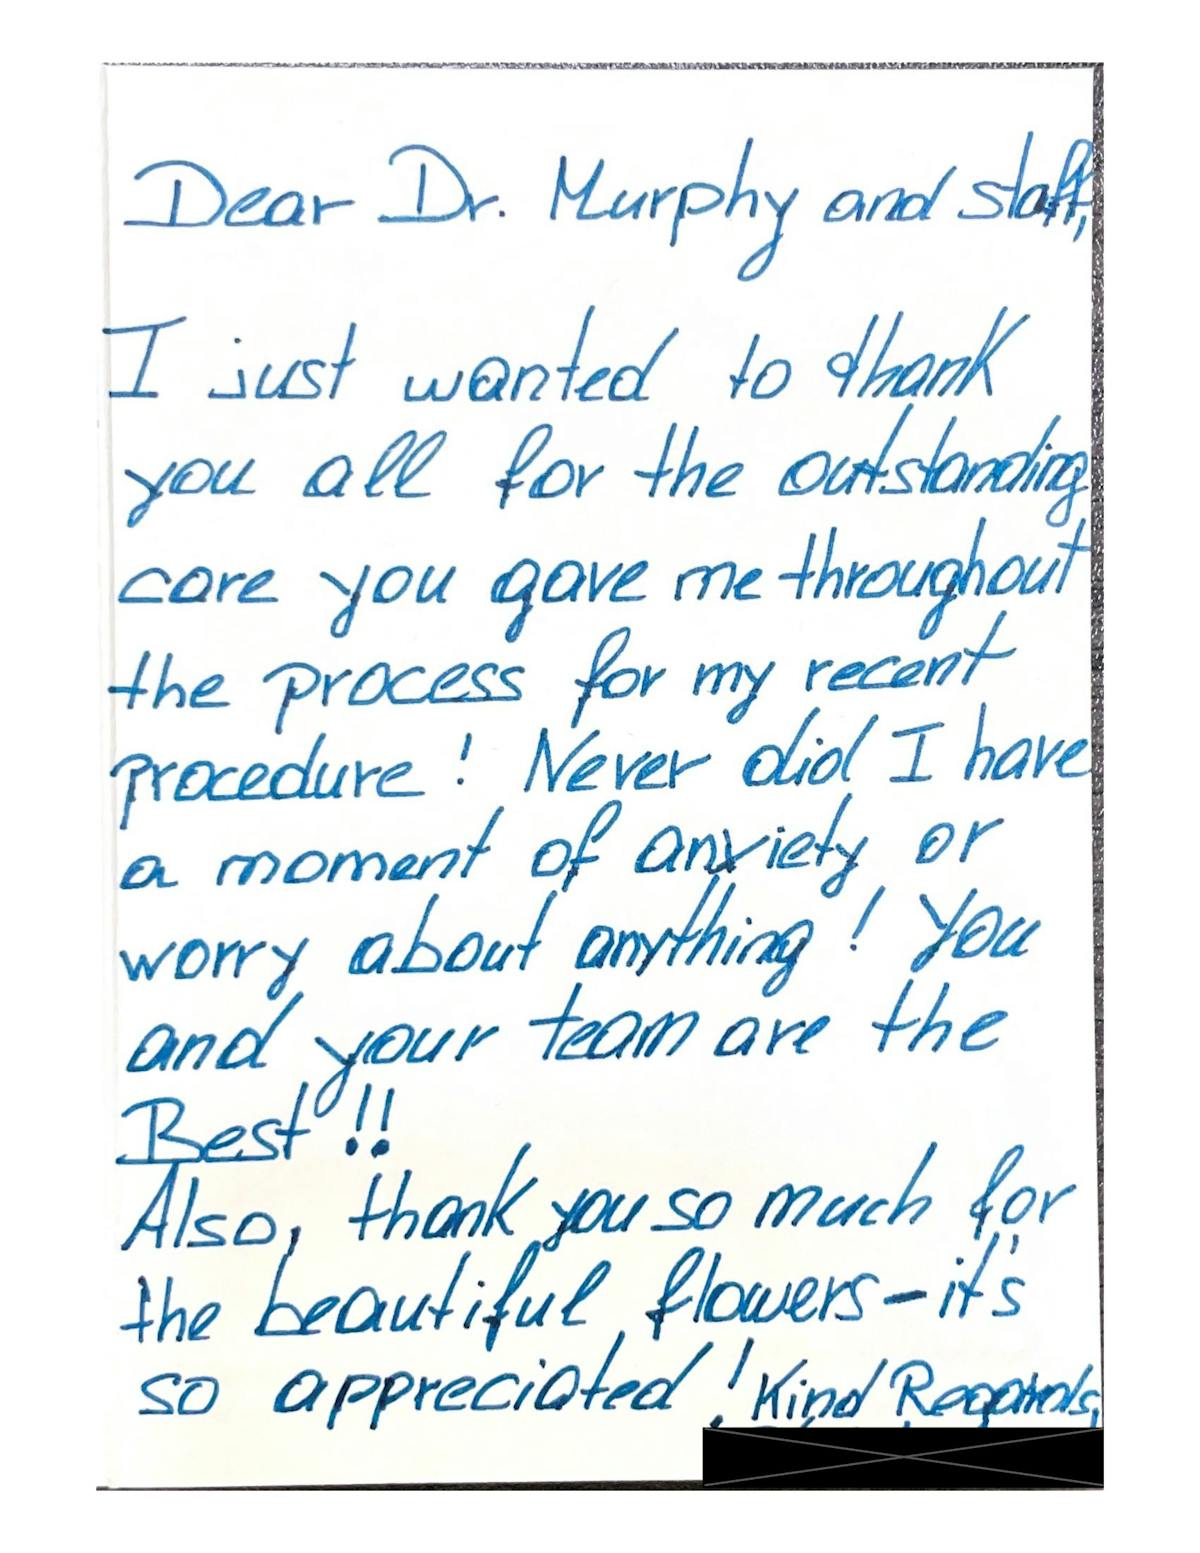 Dear Dr. Murphy and staff,
I just wanted to thank
you all for the outstanding
care you gave me throughout
the process for my recent
procedure! Never did I have
a moment of anxiety or
worry about anything! You
and your team are the
Best!!
Also, thank you so much for
the beautiful flowers—it's
so appreciated! Kind Regards,